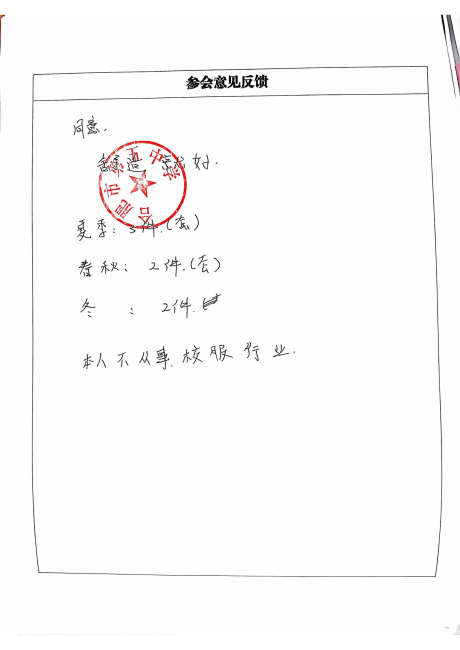 参会意见反馈
同意.
夏季: 3件.(套)
春秋: 2件.(套)
冬 : 2件.
本人不从事校服行业.